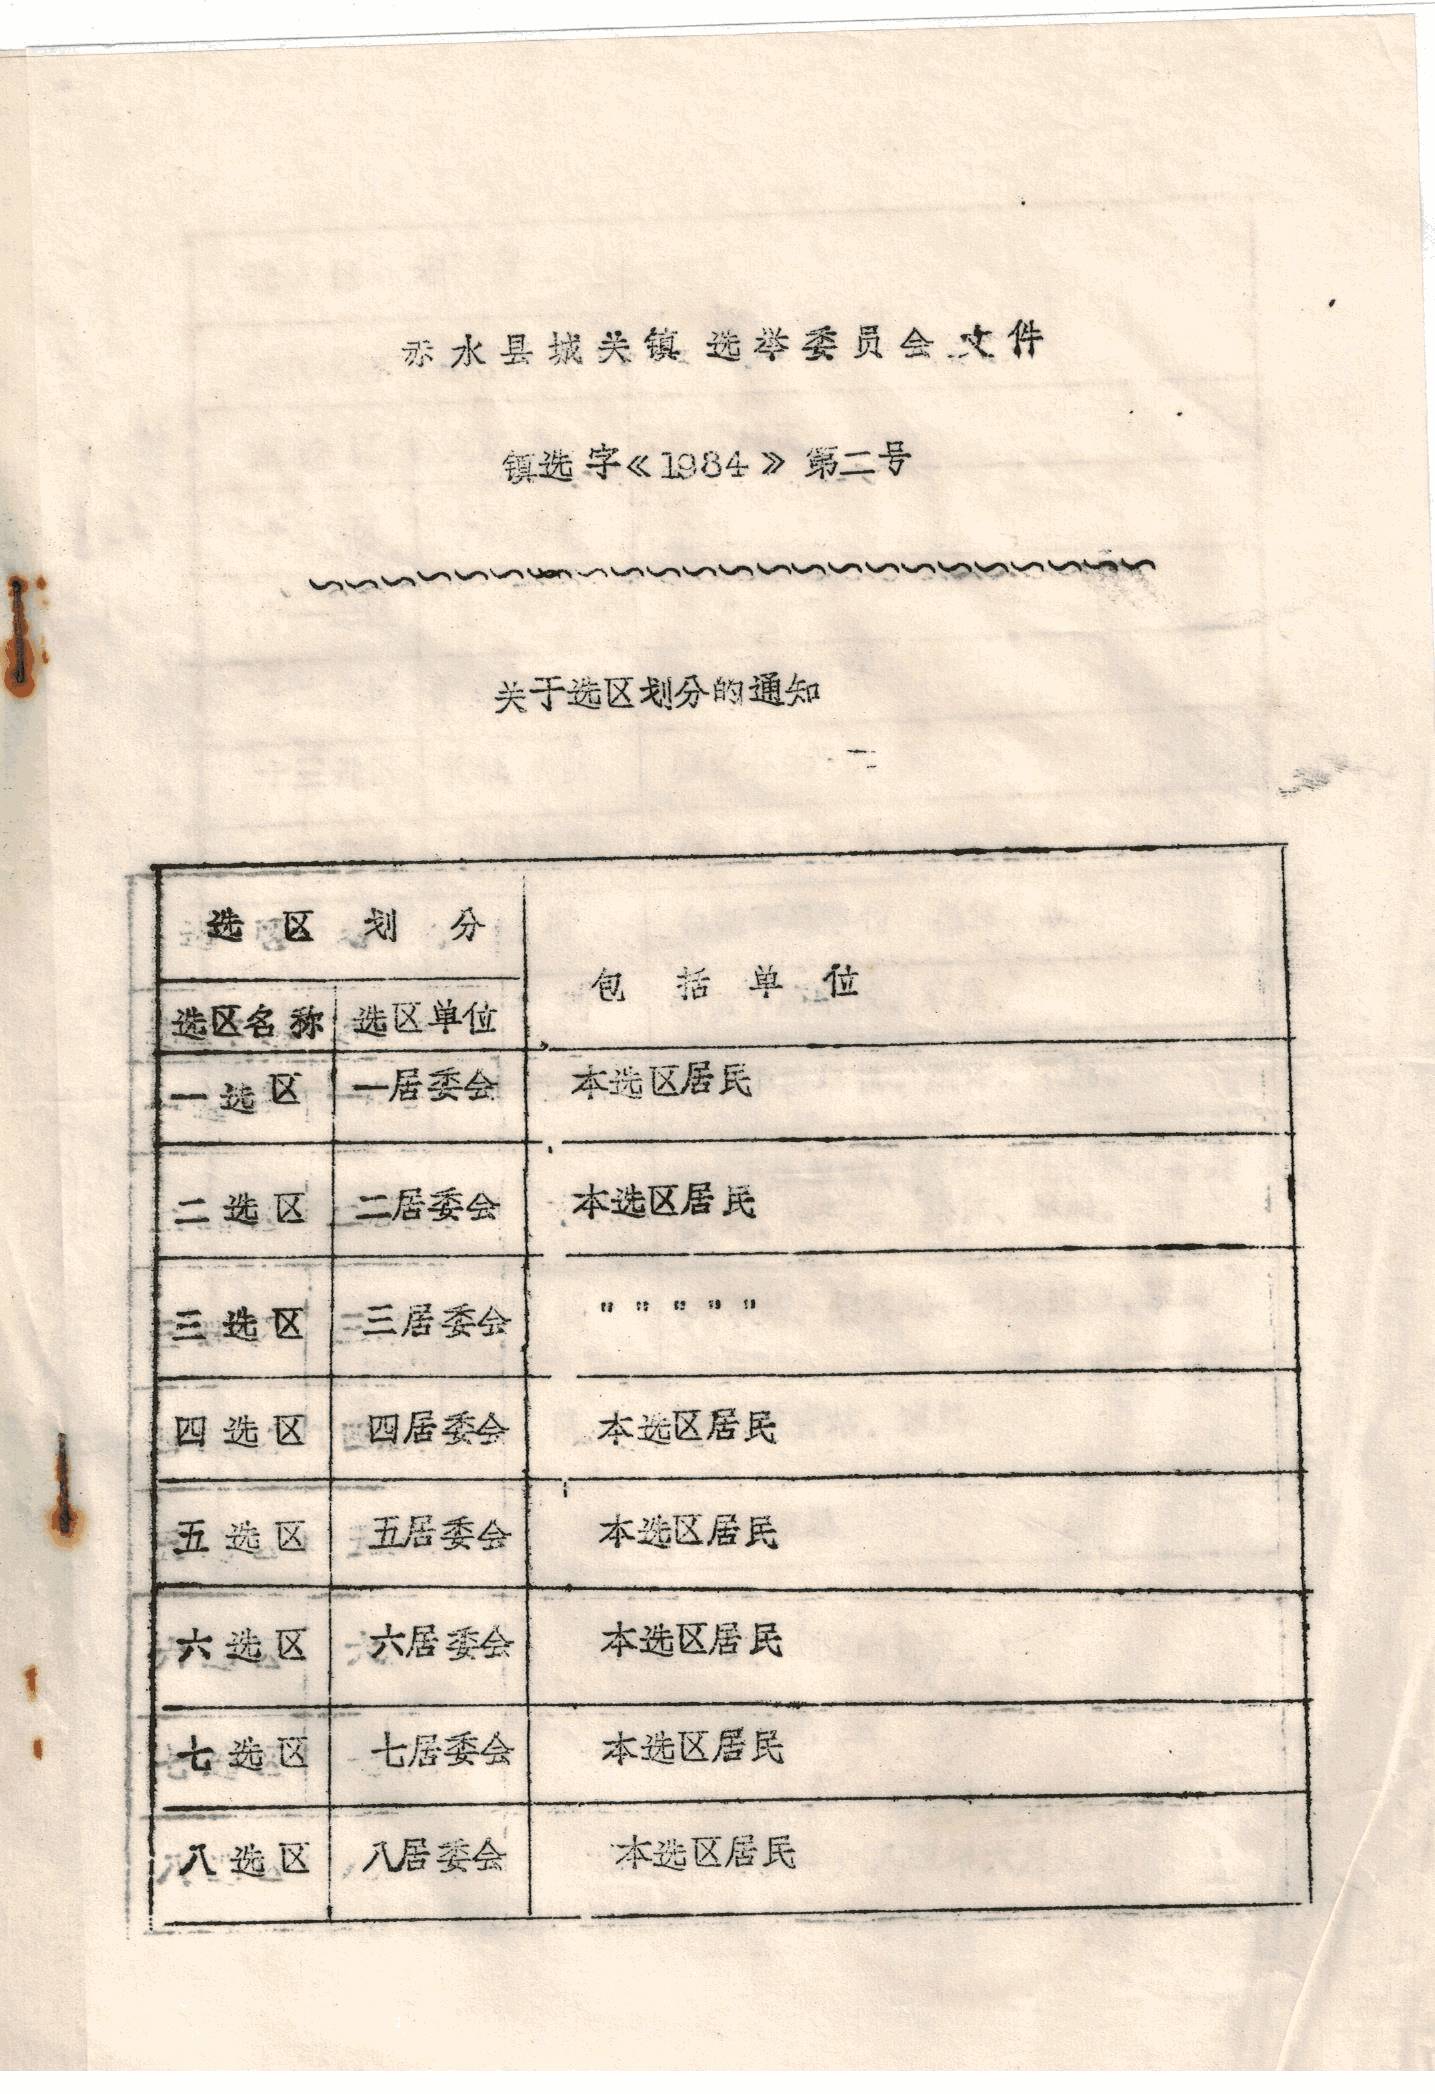 赤水县城关镇选举委员会文件
镇选字《1984》第二号
关于选区划分的通知
选区划分 包括单位
选区名称 选区单位
一选区 一居委会 本选区居民
二选区 二居委会 本选区居民
三选区 三居委会 〃〃〃〃〃
四选区 四居委会 本选区居民
五选区 五居委会 本选区居民
六选区 六居委会 本选区居民
七选区 七居委会 本选区居民
八选区 八居委会 本选区居民